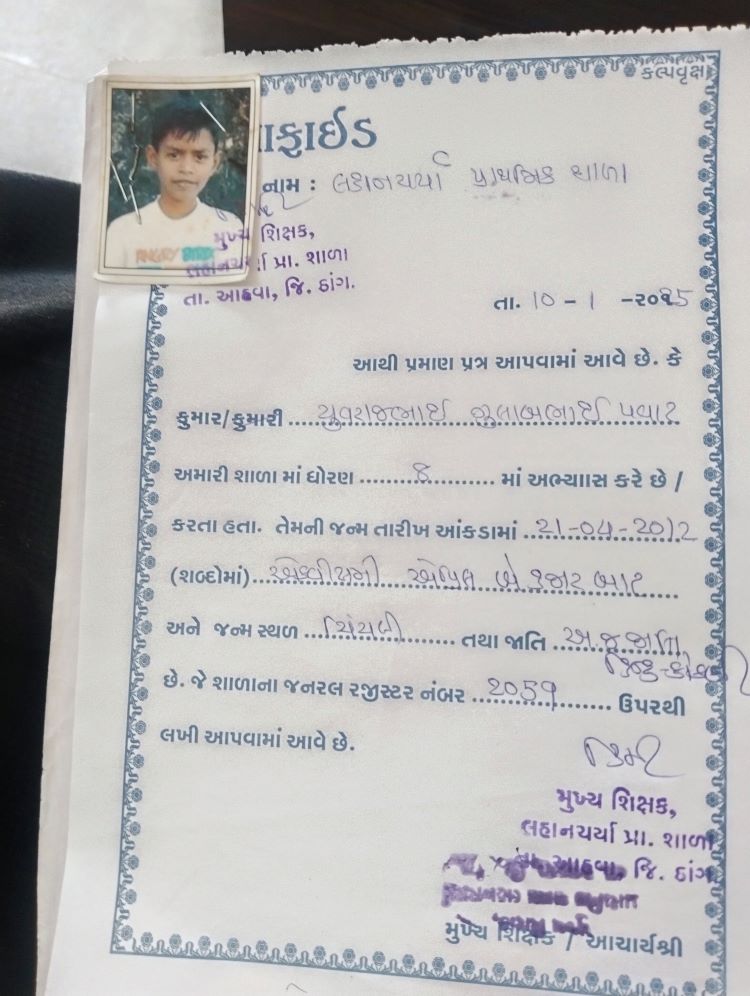 કલ્પવૃક્ષ
ાફાઈડ
નામ : લહાનચર્યા પ્રાથમિક શાળા
મુખ્ય શિક્ષક,
લહાનચર્યા પ્રા. શાળા
તા. આહવા, જિ. ડાંગ.
તા. 10 - 1 -૨૦૨5
આથી પ્રમાણ પત્ર આપવામાં આવે છે. કે
કુમાર/કુમારી યુવરાજભાઈ ગુલાબભાઈ પવાર
અમારી શાળા માં ધોરણ 8 માં અભ્યાસ કરે છે /
કરતા હતા. તેમની જન્મ તારીખ આંકડામાં 21-04-2012
(શબ્દોમાં) એકવીસમી એપ્રિલ બે હજાર બાર
અને જન્મ સ્થળ ચિંચલી તથા જાતિ અ.જ.જાતિ
હિન્દુ-કોકણી
છે. જે શાળાના જનરલ રજીસ્ટર નંબર 2059 ઉપરથી
લખી આપવામાં આવે છે.
મુખ્ય શિક્ષક,
લહાનચર્યા પ્રા. શાળા
તા. આહવા, જિ. ડાંગ
મુખ્ય શિક્ષક / આચાર્યશ્રી